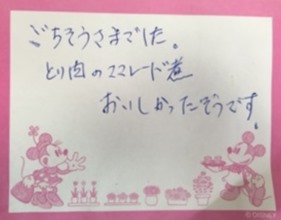 ごちそうさまでした。
とり肉のママレード煮
おいしかったそうです。
© DISNEY